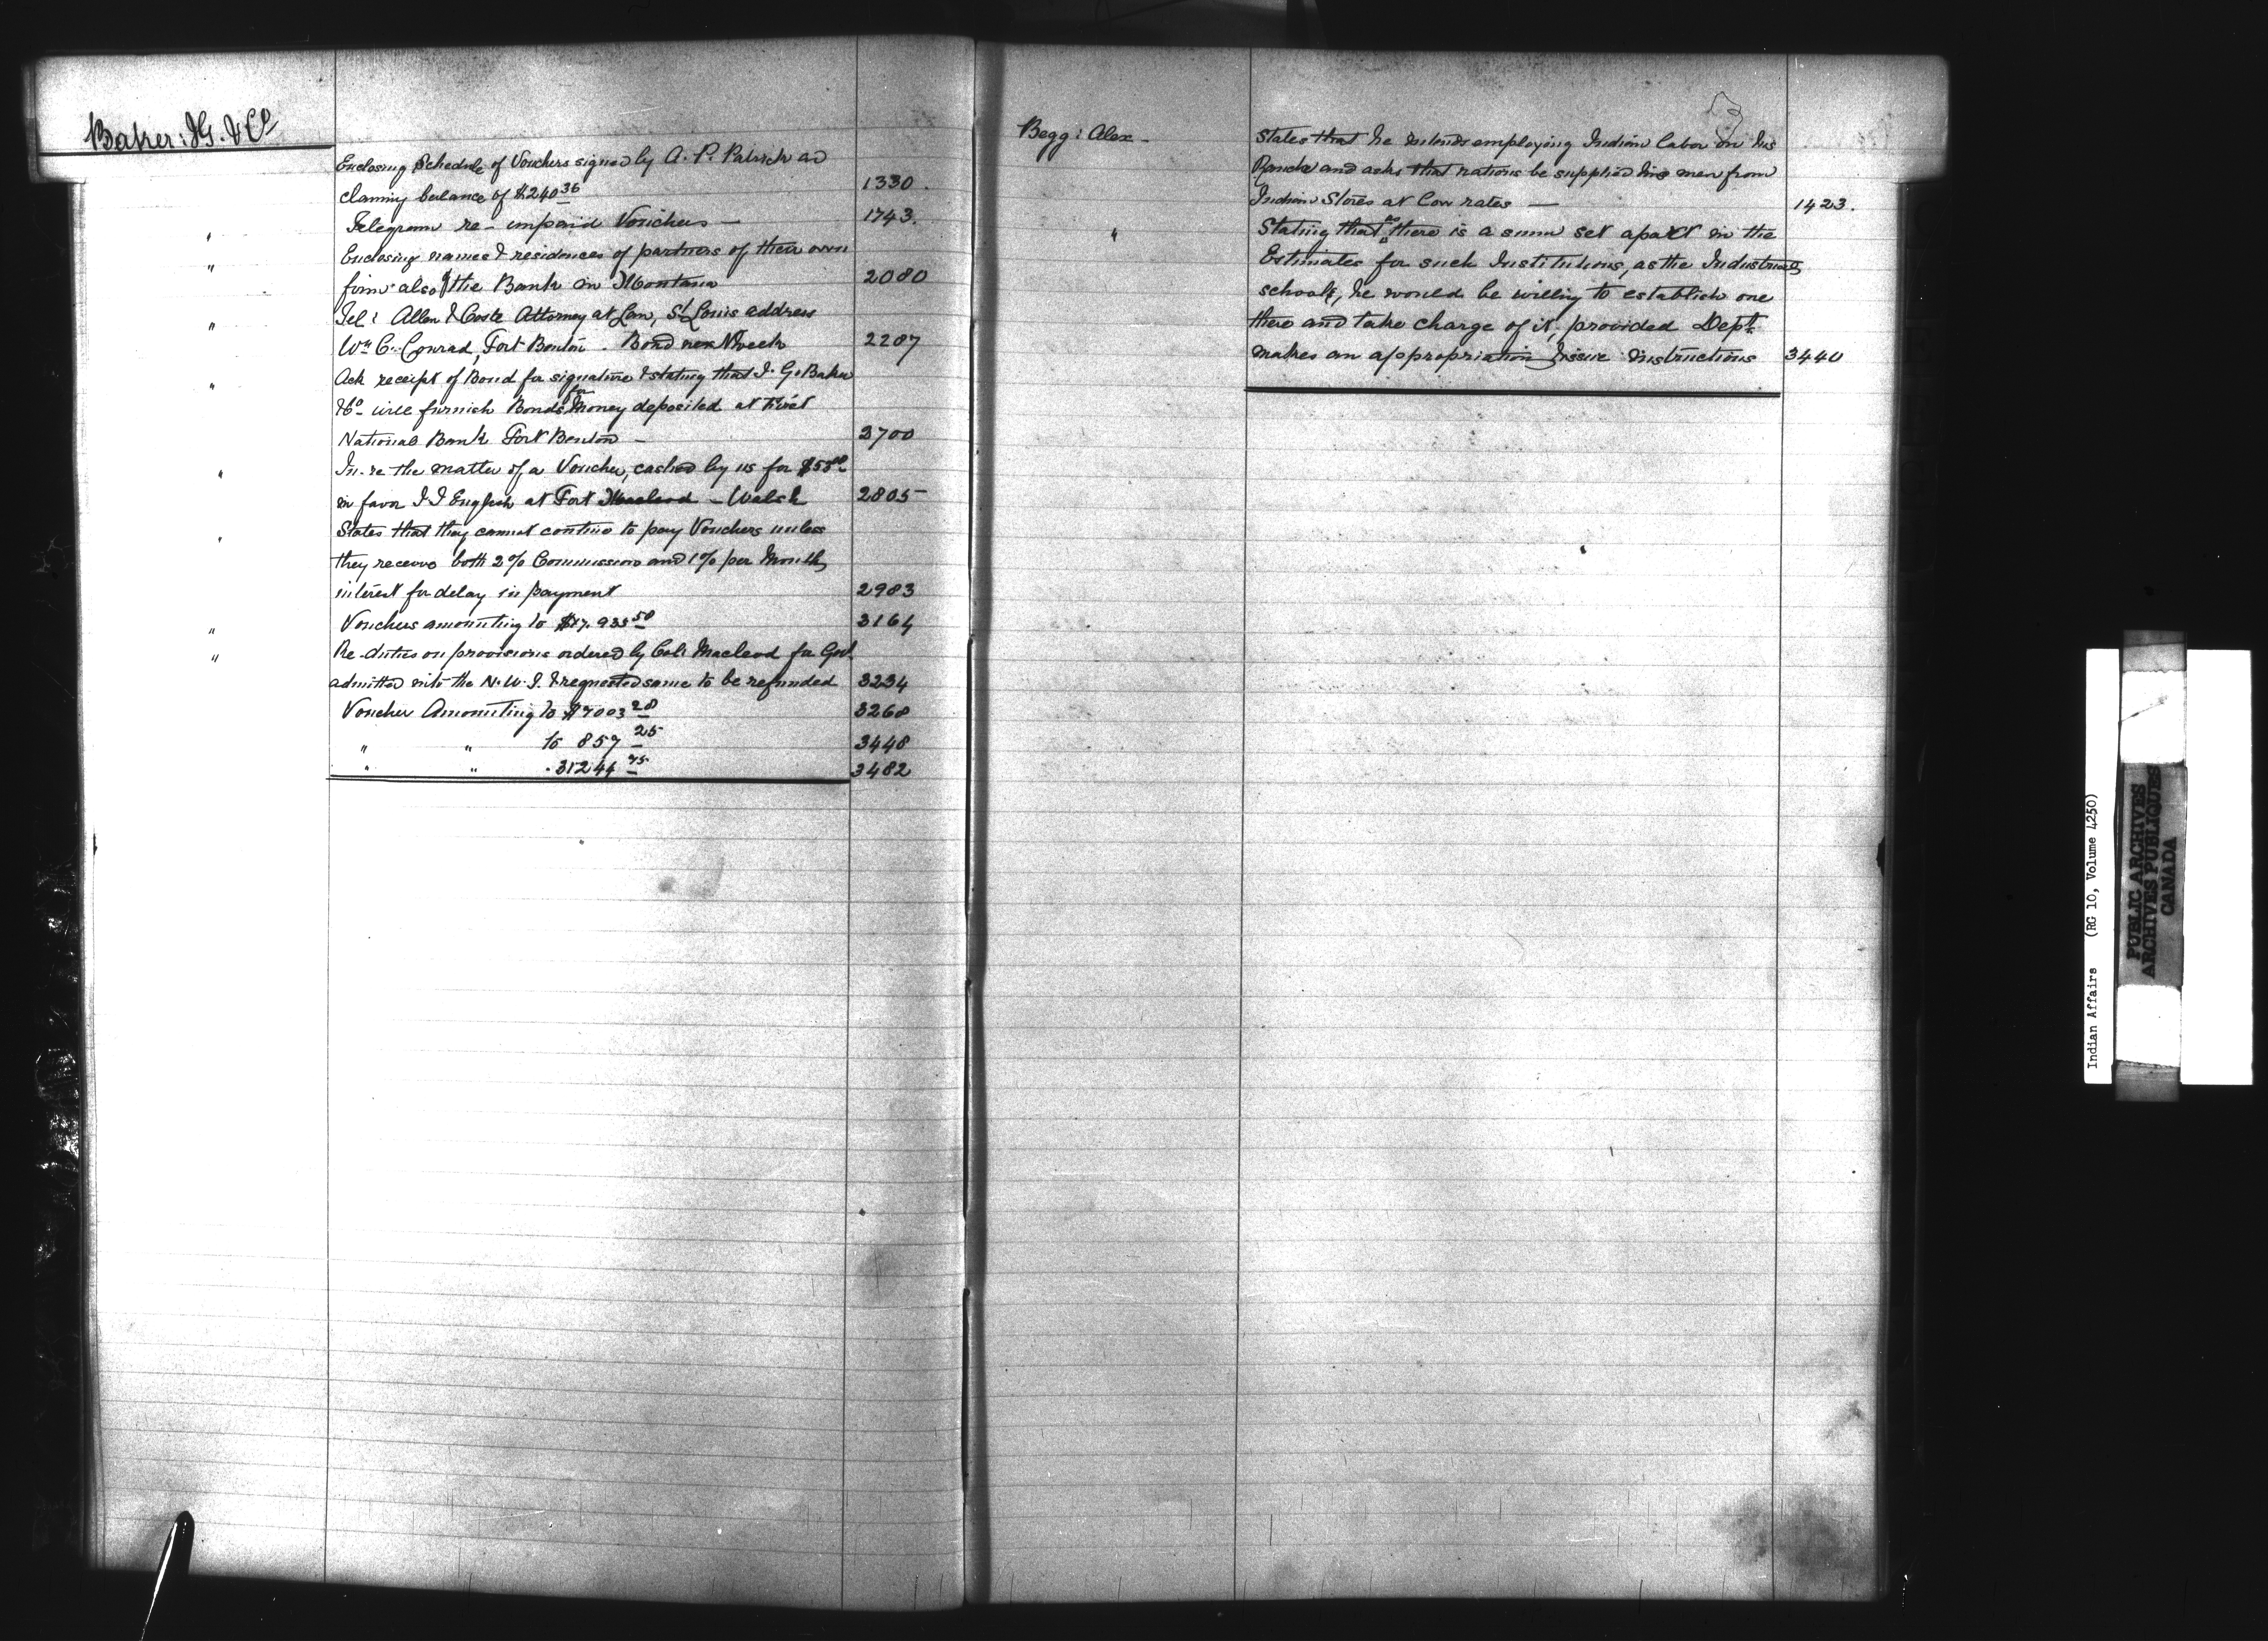 Baker: I G. & Co
Enclosing Schedule of Vouchers signed by A. P. Patrick and
claming balance of $240 36 1330.
" Telegram re- unpaid Vouchers — 1743.
" Enclosing names & residences of partners of their own
firm also of the Bank in Montana 2080
" Tel: Allen & Coste Attorney at Law, St Louis address
Wm C. Conrad, Fort Benton. Bond next Week 2207
" Ack receipt of Bond for signature & stating that I. G. Baker
& Co will furnish Bonds for Money deposited at First
National Bank Fort Benton — 2700
" In re the matter of a Voucher, cashed by us for
in favor J J English at Fort Macleod - Walsh 2805
" States that they cannot continue to pay Vouchers unless
they receive both 2% Commission and 1% per Month
interest for delay in payment 2983
" Vouchers amounting to 3164
" Re- duties on provisions ordered by Col: Macleod for Govt
admitted into the N. W. T. & requested same to be refunded 3234
Voucher Amounting to $7003 28 3268
" " to 857 25 3448
" " . 31244 75 3482
Begg: Alex — States that he intends employing Indian labor on his
Ranche and asks that rations be supplied his men from
Indian Stores at low rates — 1423.
" Stating that as there is a sum set apart in the
Estimates for such Institutions, as the Industrial
schools, he would be willing to establish one
there and take charge of it, provided Dept.
makes an appropriation & issue instructions 3440
Indian Affairs (RG 10, Volume 4250)
PUBLIC ARCHIVES
ARCHIVES PUBLIQUES
CANADA